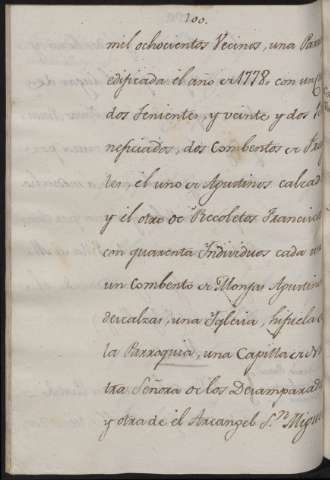 100.
mil ochocientos Vecinos, una Parro
edificada el año de 1778, con un
dos Tenientes, y veinte y dos Be
neficiados, dos Combentos de Fray
les, el uno de Agustinos calzad
y el otro de Recoletos Francisc
con quarenta Individuos cada
un Combento de Monjas Agustin
descalzas, una Iglesia, hijuela
la Parroquia, una Capilla de N
tra Señora de los Desamparad
y otra de el Arcangel S.n Migue